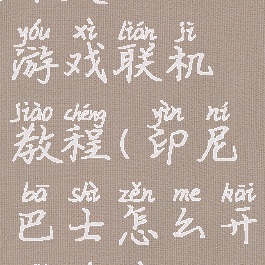 yóu xì lián jī
游戏联机
jiào chéng yìn ní
教程(印尼
bā shì zěn me kāi
巴士怎么开